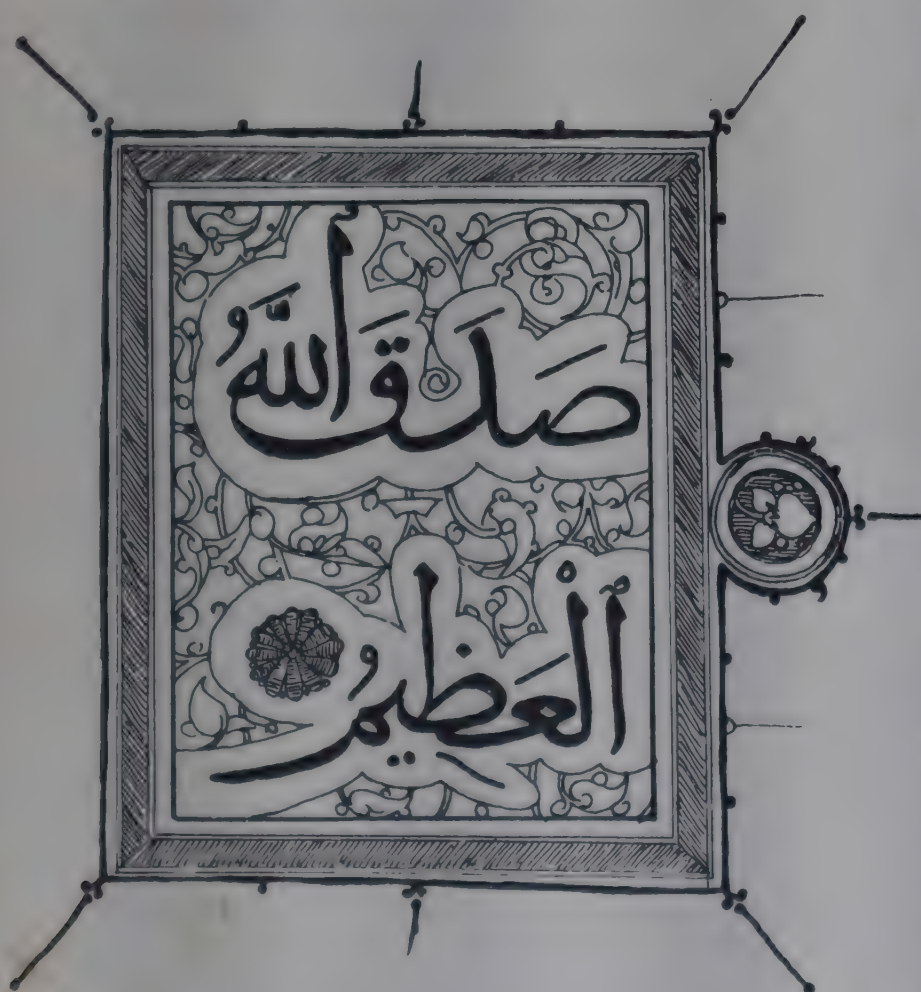 صَدَقَ اللَّهُ
الْعَظِيمُ